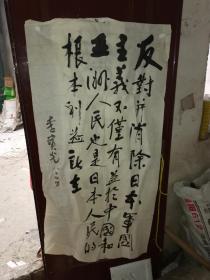 反對并消除日本軍國
主義不僅有益於中國和
亚洲人民也是日本人民的
根本利益所在